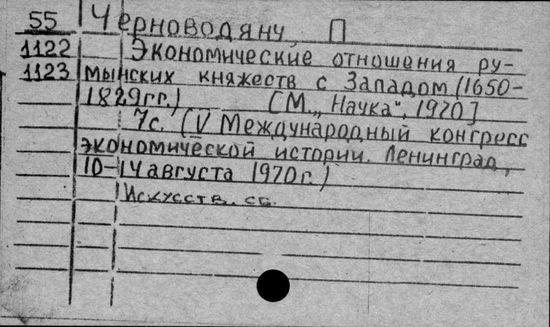 55 Черноводяну, П
1122 Экономические отношения ру-
1123 мынских княжеств с Западом (1650-
1829гг.) [М., „Наука", 1970]
7с. (V Международный конгресс
экономической истории. Ленинград,
10-14 августа 1970г.)
Искусств. сб.